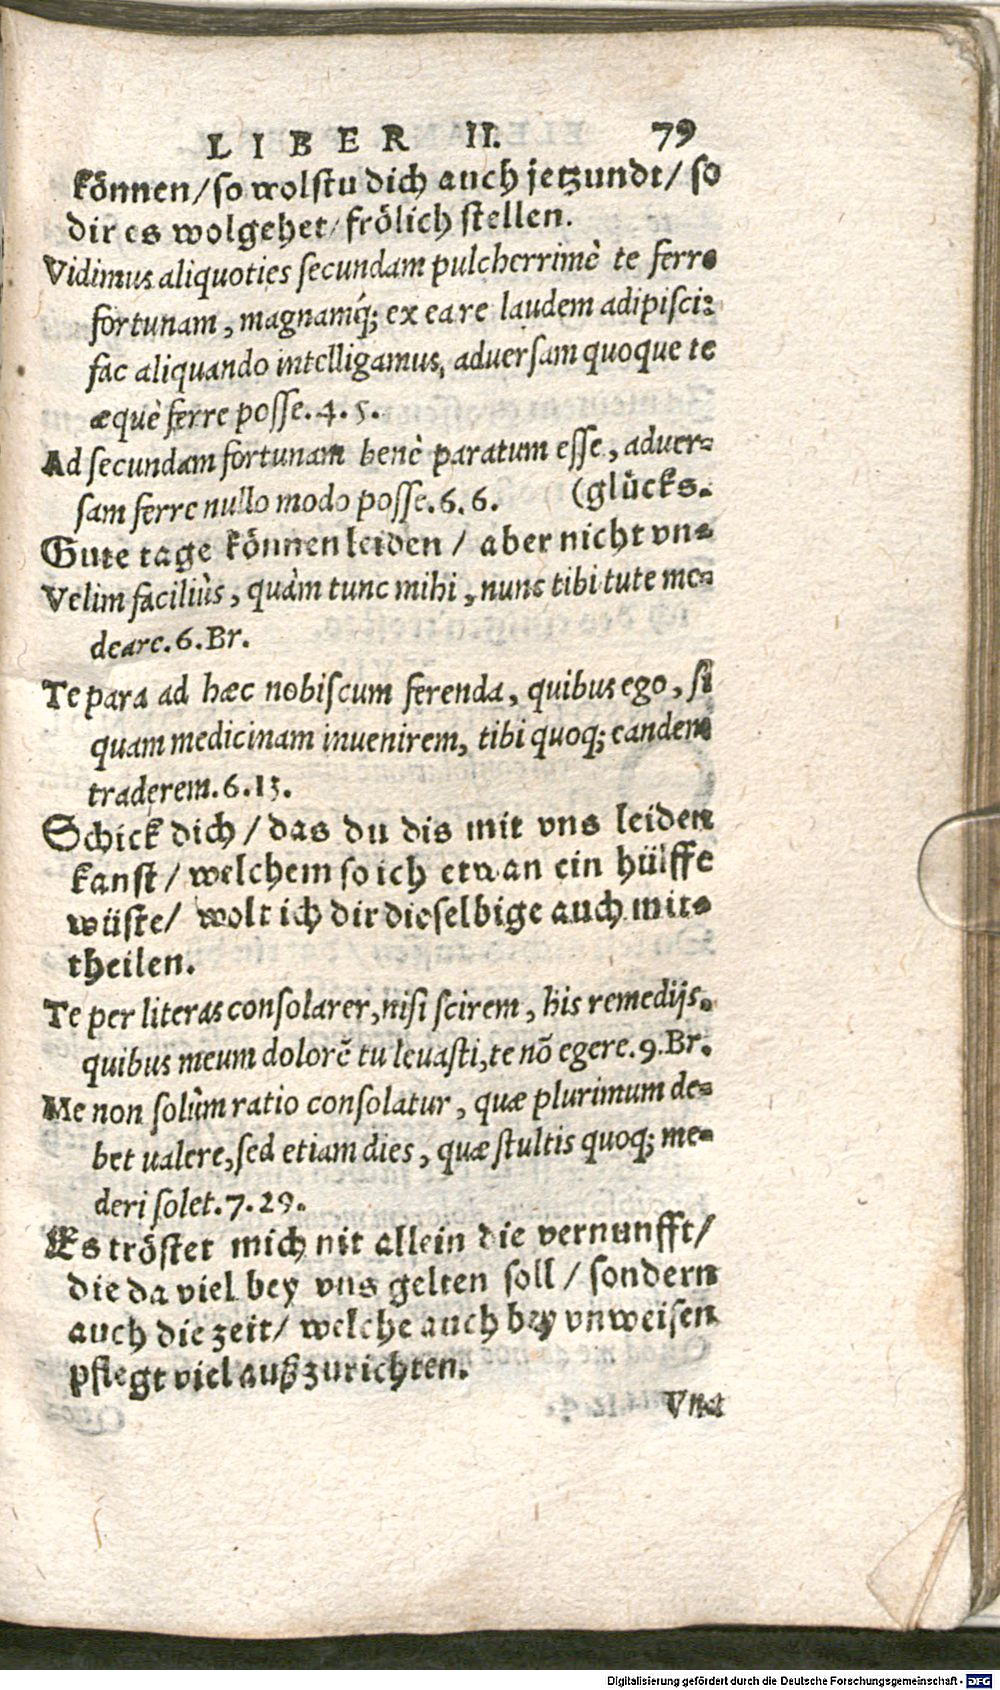 LIBER II. 79
können/so wolstu dich auch jetzundt/ so
dir es wolgehet/frölich stellen.
Vidimus aliquoties secundam pulcherrimè te ferre
fortunam, magnamq́; ex ea re laudem adipisci:
fac aliquando intelligamus, aduersam quoque te
æquè ferre posse. 4. 5.
Ad secundam fortunam benè paratum esse, aduer-
sam ferre nullo modo posse. 6. 6. (glücks.
Gute tage können leiden / aber nicht vn-
Velim faciliùs, quàm tunc mihi, nunc tibi tute me-
deare. 6. Br.
Te para ad hæc nobiscum ferenda, quibus ego, si
quam medicinam inuenirem, tibi quoq; eandem
traderem. 6. 13.
Schick dich / das du dis mit vns leiden
kanst / welchem so ich etwan ein hülffe
wüste/ wolt ich dir dieselbige auch mit-
theilen.
Te per literas consolarer, nisi scirem, his remedijs,
quibus meum dolorē tu leuasti, te nō egere. 9. Br.
Me non solùm ratio consolatur, quæ plurimum de-
bet ualere, sed etiam dies, quæ stultis quoq; me-
deri solet. 7. 29.
Es tröstet mich nit allein die vernunfft/
die da viel bey vns gelten soll / sondern
auch die zeit/ welche auch bey vnweisen
pflegt viel außzurichten.
Vna
Digitalisierung gefördert durch die Deutsche Forschungsgemeinschaft - DFG